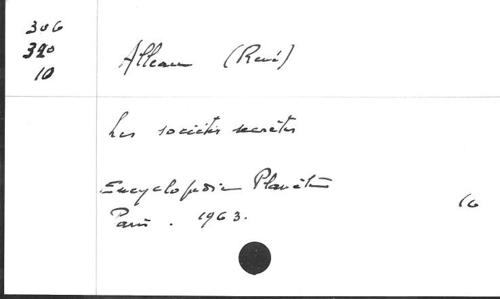 306
320
10
Alleau (René)
Les sociétés secrètes
Encyclopédie Planète
Paris. 1963.
16